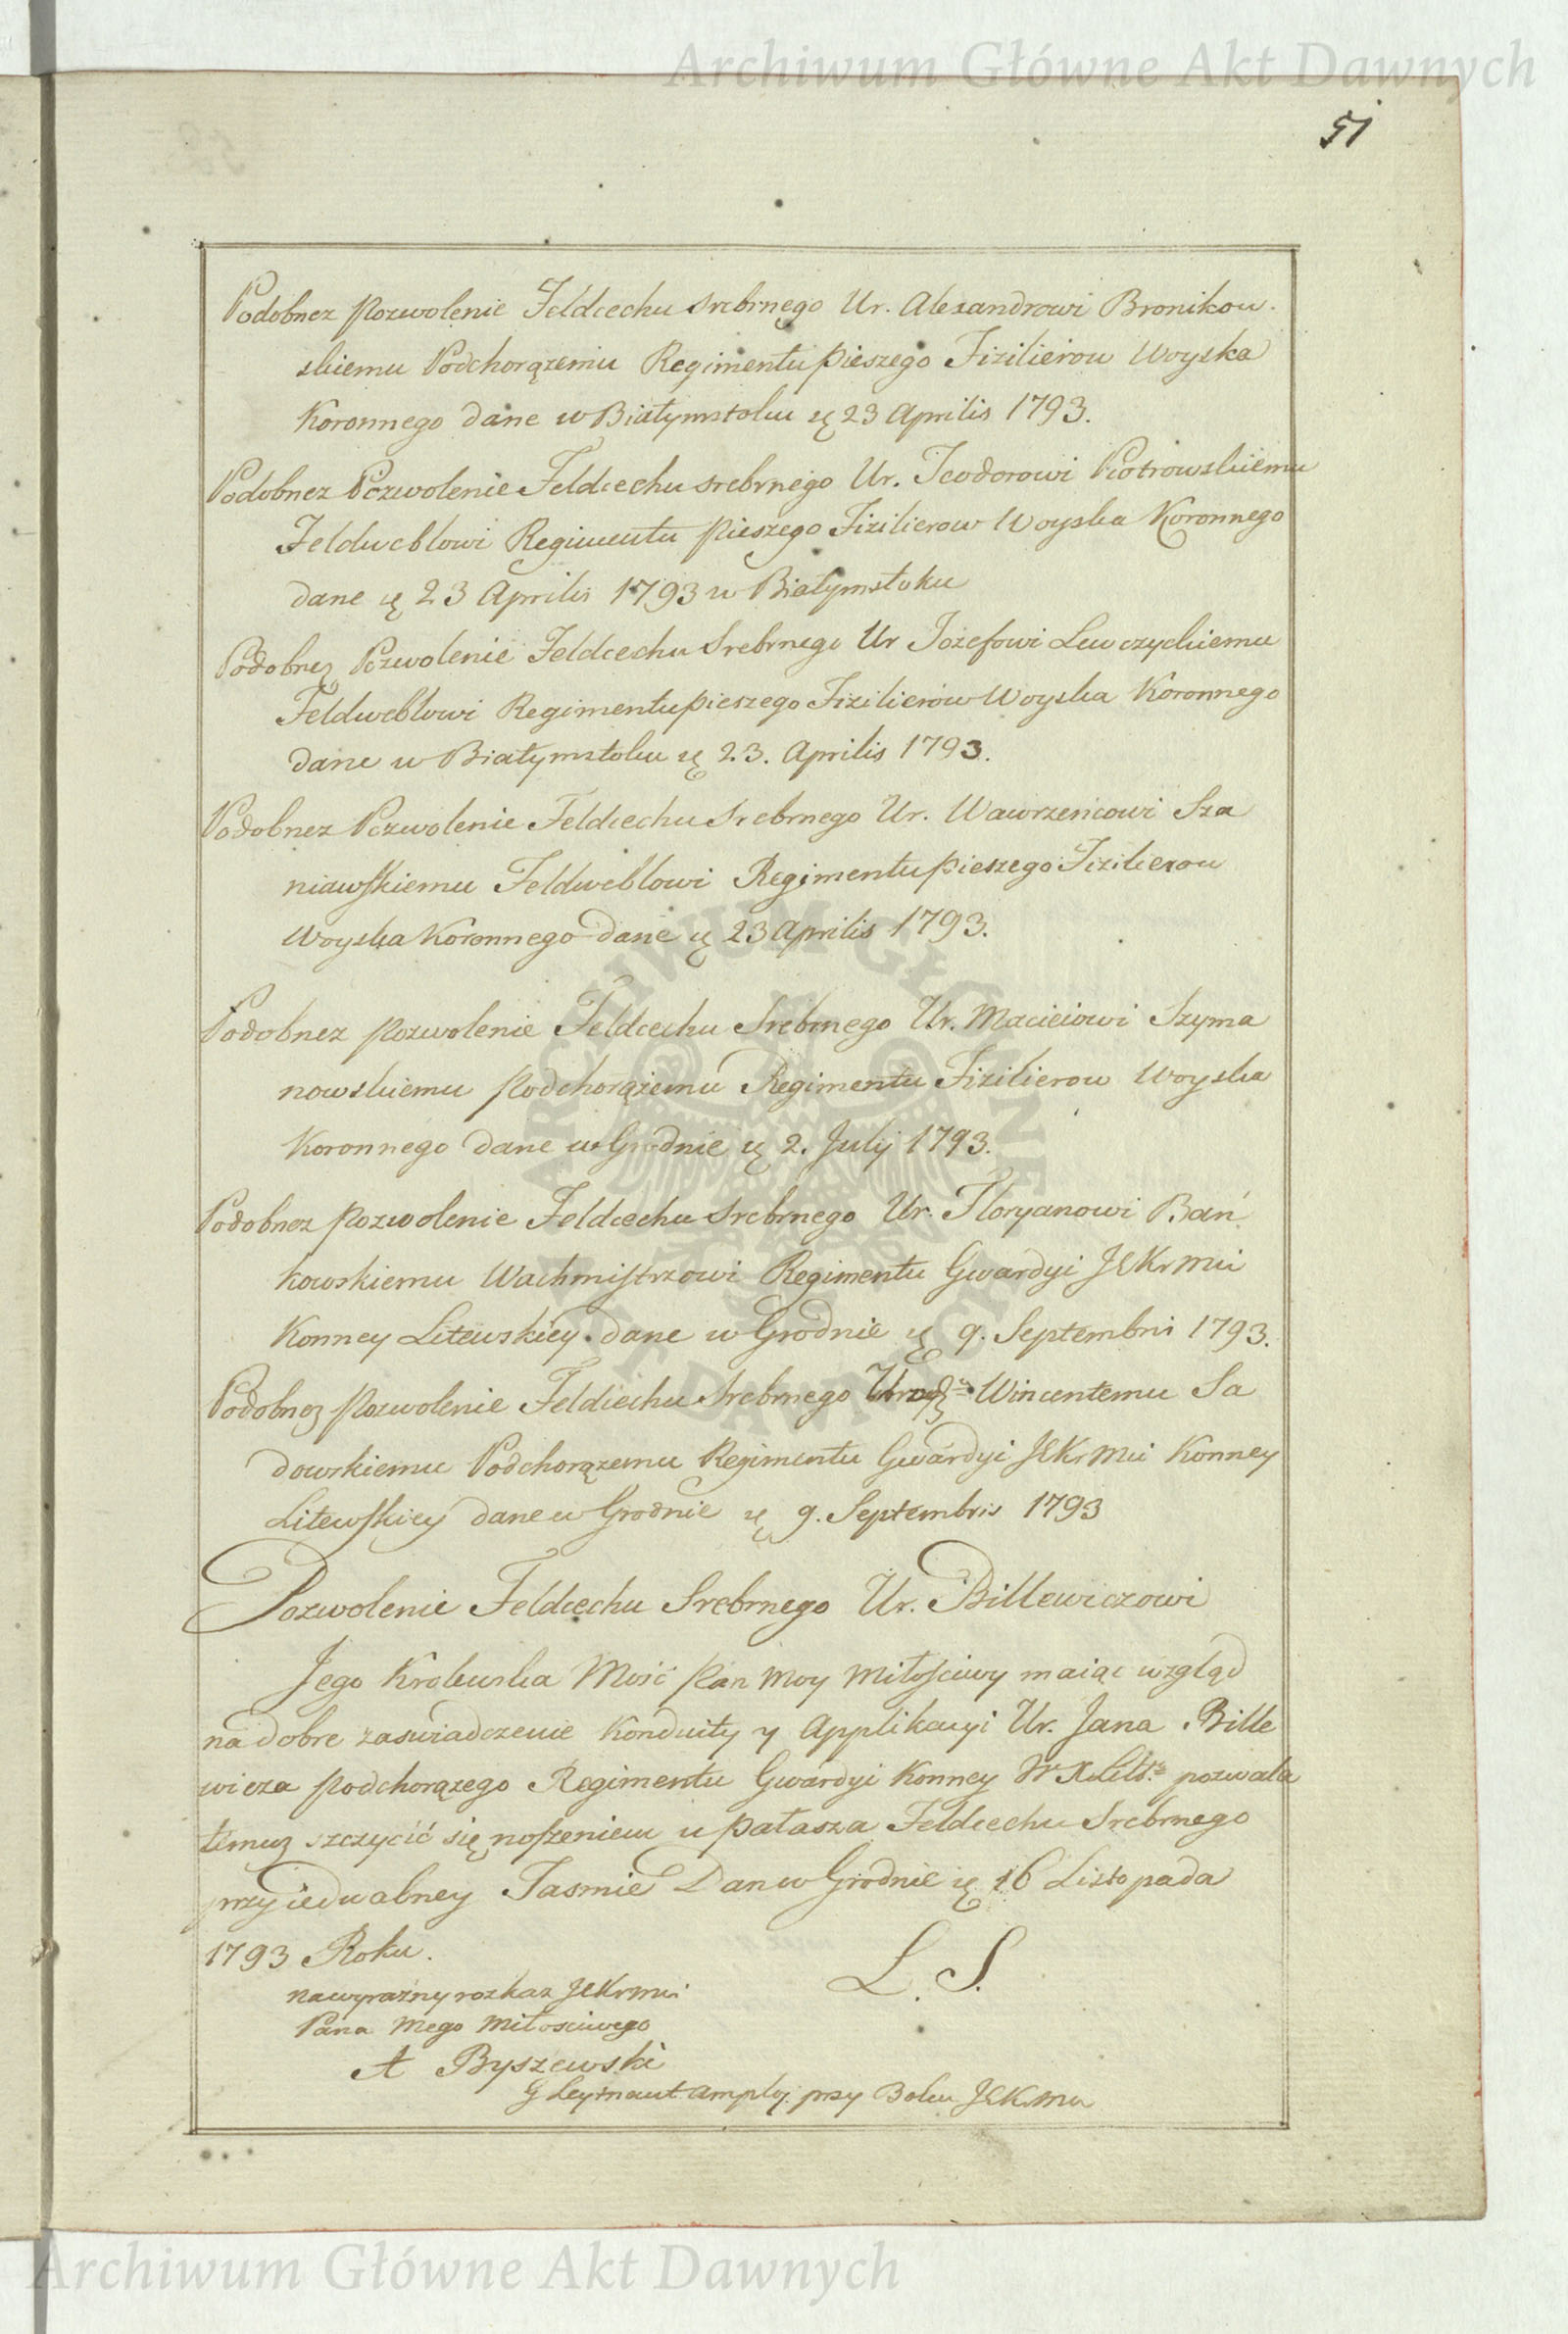 Archiwum Główne Akt Dawnych
51
Podobnez pozwolenie Feldcechu srebrnego Ur. Alexandrowi Bronikow-
skiemu Podchorązemu Regimentu pieszego Fizilierow Woyska
Koronnego dane w Białymstoku d 23 Aprilis 1793.
Podobnez Pozwolenie Feldcechu srebrnego Ur. Teodorowi Piotrowskiemu
Feldweblowi Regimentu pieszego Fizilierow Woyska Koronnego
dane d 23 Aprilis 1793 w Białymstoku
Podobnez Pozwolenie Feldcechu Srebrnego Ur Jozefowi Lewczyckiemu
Feldweblowi Regimentu pieszego Fizilierow Woyska Koronnego
dane w Białymstoku d 23. Aprilis 1793.
Podobnez Pozwolenie Feldcechu Srebrnego Ur. Wawrzencowi Sza
niawskiemu Feldweblowi Regimentu pieszego Fizilierow
Woyska Koronnego dane d 23 Aprilis 1793.
Podobnez pozwolenie Feldcechu Srebrnego Ur. Macieiowi Szyma
nowskiemu Podchorążemu Regimentu Fizilierow Woyska
Koronnego dane w Grodnie d 2. Julij 1793.
Podobnez pozwolenie Feldcechu Srebrnego Ur. Floryanowi Bań
kowskiemu Wachmistrzowi Regimentu Gwardyi JKrMci
Konney Litewskiey dane w Grodnie d 9. Septembris 1793.
Podobnez pozwolenie Feldcechu Srebrnego Wincentemu Sa
dowskiemu Podchorązemu Regimentu Gwardyi JKrMci Konney
Litewskiey dane w Grodnie d 9. Septembris 1793
Pozwolenie Feldcechu Srebrnego Ur. Billewiczowi
Jego Krolewska Mość Pan Moy Miłościwy maiąc wzgląd
na dobre zaswiadczenie Konduity y Applikacyi Ur. Jana Bille
wicza podchorązego Regimentu Gwardyi Konney pozwala
temuz szczycić się noszeniem u pałasza Feldcechu Srebrnego
przy iedwabney Tasmie Dan w Grodnie d 16 Listopada
1793 Roku.
L. S.
na wyraźny rozkaz JKrMci
Pana Mego Miłosciwego
A Byszewski
G Leytnant przy Boku JKrMci
Archiwum Główne Akt Dawnych